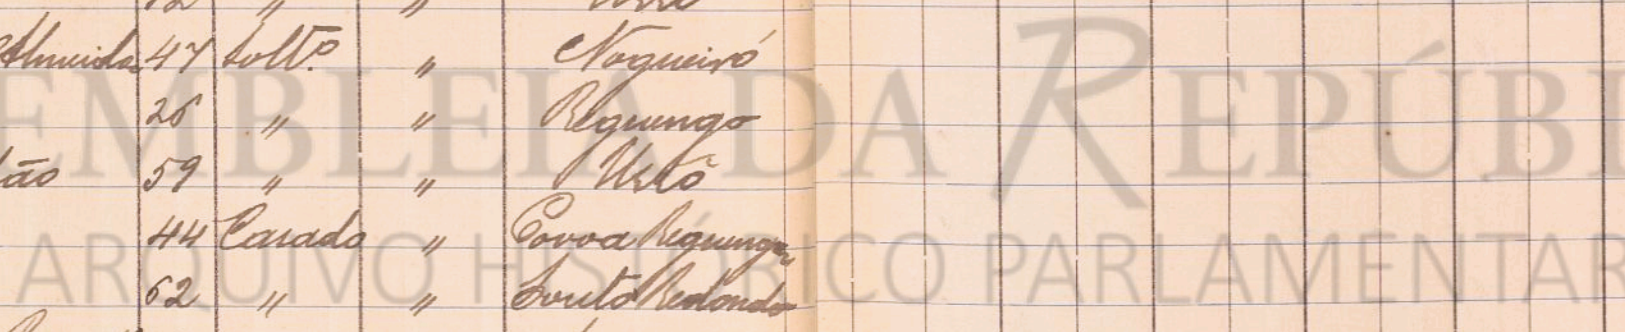 Almeida 47 Solt.º " Nogueiró
26 " " Reguengo
ão 59 " "
44 Casado " Povoa Reguengo
62 " " Souto Redondo
ASSEMBLEIA DA REPÚBL
ARQUIVO HISTÓRICO PARLAMENTAR